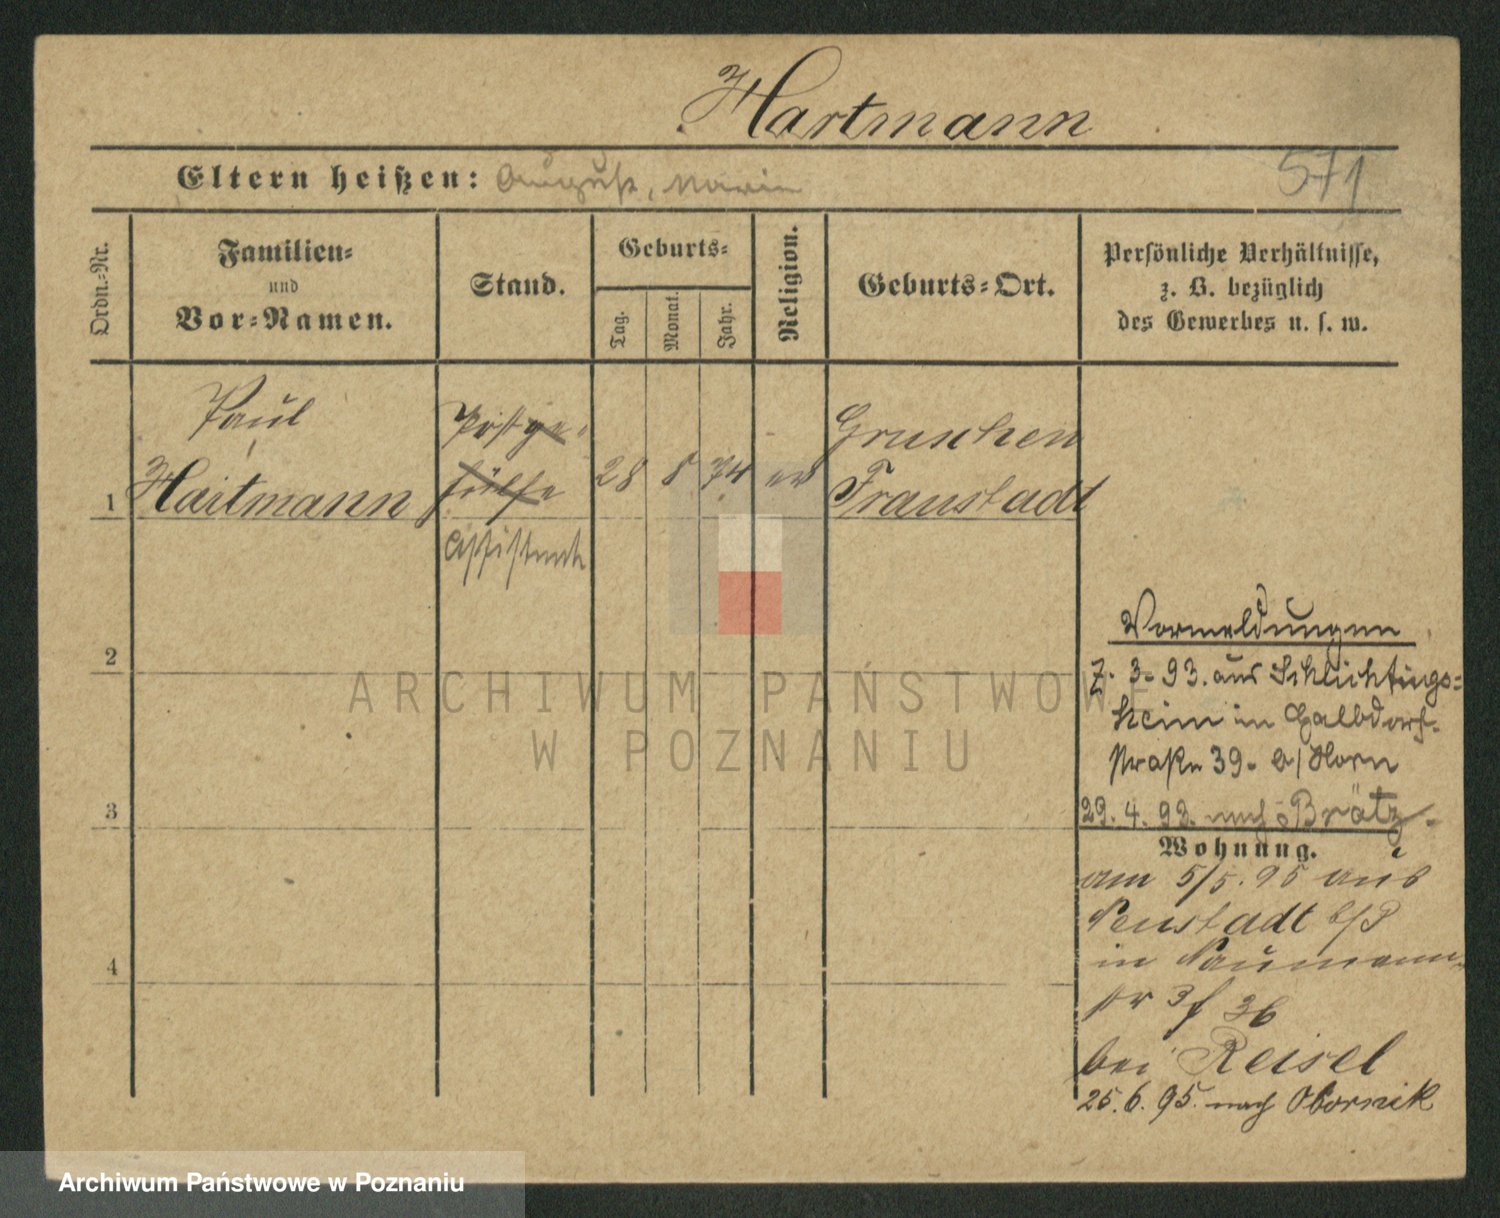 Hartmann
Eltern heißen: August, Marie
571
Ordn.-Nr.
Familien-
und
Vor-Namen.
Stand.
Geburts-
Tag.
Monat.
Jahr.
Religion.
Geburts-Ort.
Persönliche Verhältnisse,
z. B. bezüglich
des Gewerbes u. s. w.
1
Paul
Hartmann
Postge-
hülfe
Assistent
28
8
74
ev
Gruschen
Fraustadt
2
3
4
Vormeldungen
7. 3. 93. aus Schlichtings-
heim in Halbdorf-
straße 39. b/ Horn
29. 4. 93. nach Brätz.
Wohnung.
am 5/5. 95 aus
Neustadt b/P
in Naumann-
str 36
bei Reisel
25. 6. 95. nach Obornik
ARCHIWUM PAŃSTWOWE
W POZNANIU
Archiwum Państwowe w Poznaniu